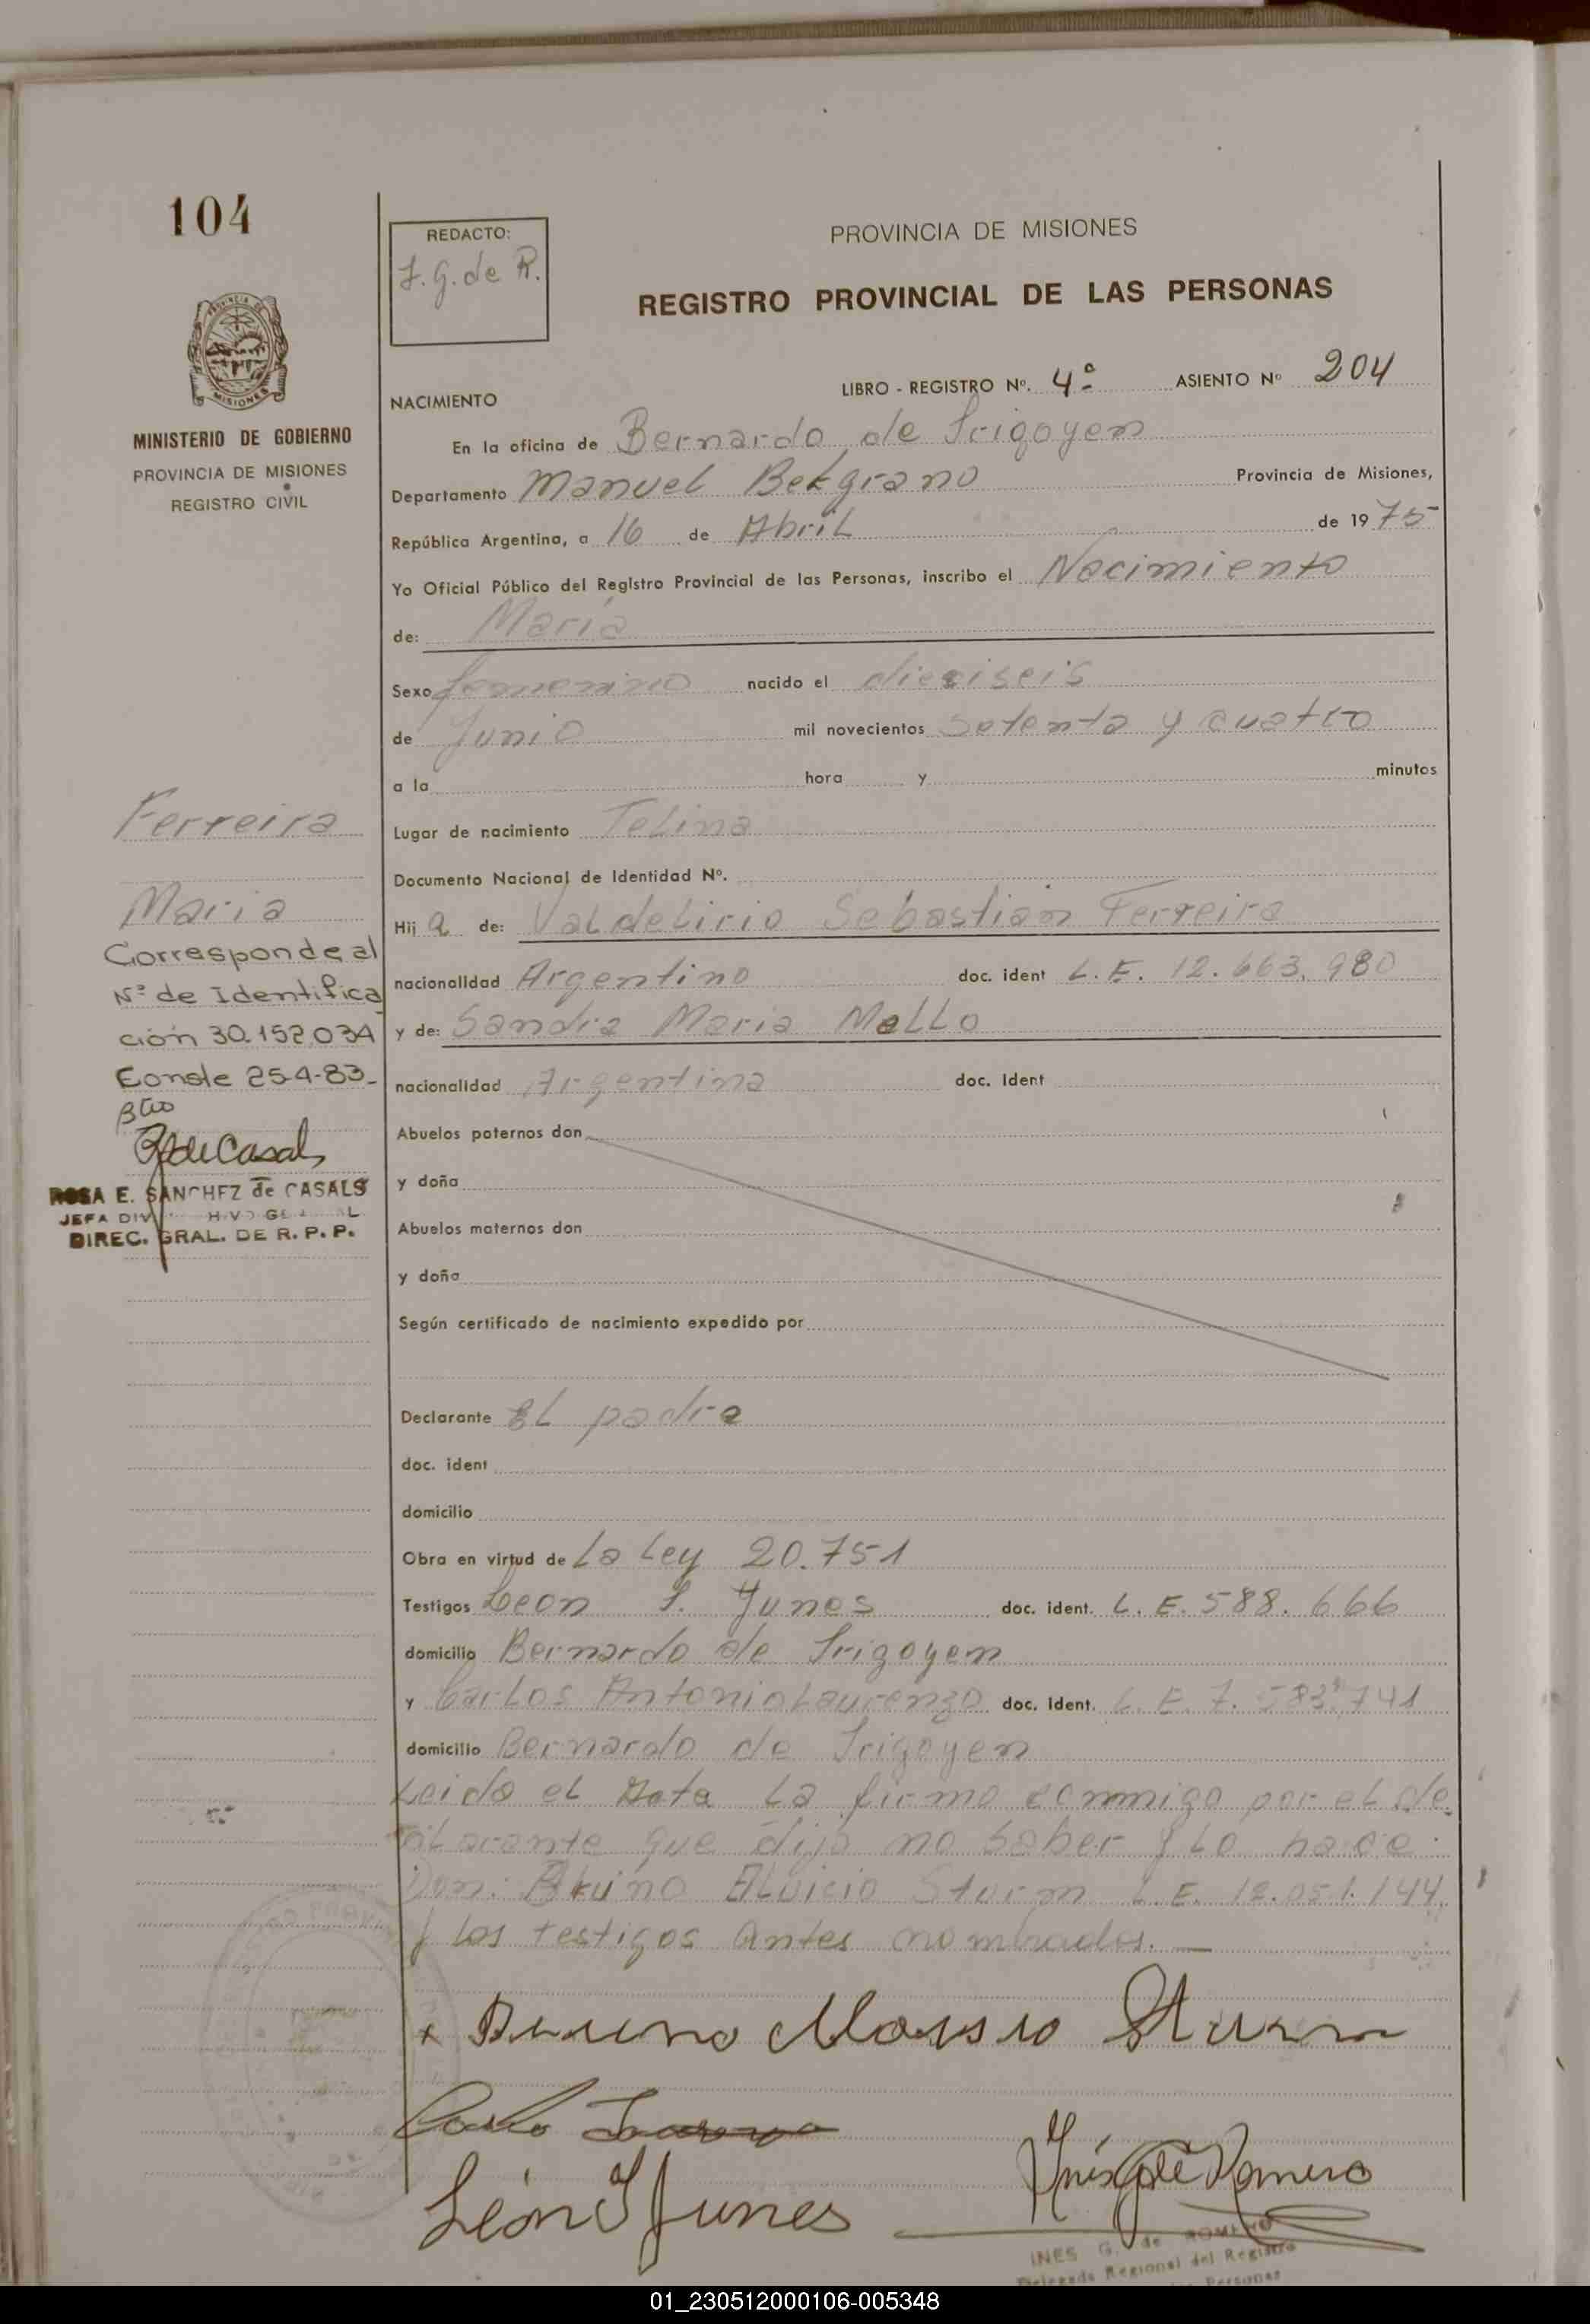 104
REDACTO:
I. G. de R.
PROVINCIA DE MISIONES
REGISTRO PROVINCIAL DE LAS PERSONAS
MINISTERIO DE GOBIERNO
PROVINCIA DE MISIONES
REGISTRO CIVIL
LIBRO - REGISTRO Nº. 4º ASIENTO Nº 204
NACIMIENTO
En la oficina de Bernardo de Irigoyen
Departamento Manuel Belgrano Provincia de Misiones,
República Argentina, a 16 de Abril de 1975
Yo Oficial Público del Registro Provincial de las Personas, inscribo el Nacimiento
de: María
Sexo femenino nacido el dieciseis
de Junio mil novecientos setenta y cuatro
a la hora y minutos
Lugar de nacimiento Telina
Documento Nacional de Identidad Nº.
Hij a de: Valdelirio Sebastian Ferreira
nacionalidad Argentino doc. ident L.E. 12.663.980
y de: Sandra Maria Mello
nacionalidad Argentina doc. Ident
Abuelos paternos don
y doña
Abuelos maternos don
y doña
Según certificado de nacimiento expedido por
Declarante El padre
doc. ident
domicilio
Obra en virtud de La Ley 20.751
Testigos Leon I. Junes doc. ident. L. E. 588.666
domicilio Bernardo de Irigoyen
y Carlos Antonio Laurenzo doc. Ident. L. E. 7.583.741
domicilio Bernardo de Irigoyen
Leido el Acta la firma conmigo por el de
clarante que dijo no saber y lo hace
Don: Bruno Aluicio Sturm L.E. 12.051.144
y los testigos antes nombrados.
Ferreira
Maria
Corresponde al
Nº de Identifica
ción 30.152.034
Conste 25-4-83-
R de Casals
ROSA E. SANCHEZ de CASALS
JEFA DIV
DIREC. GRAL. DE R. P. P.
x Bruno Sturm
León I Junes
Inés G de Romero
INES G. de ROMERO
Delegada Regional del Registro
Personas
01_230512000106-005348